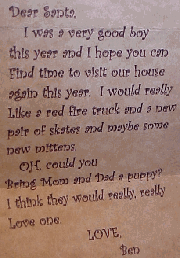 Dear Santa,
I was a very good boy
this year and I hope you can
Find time to visit our house
again this year. I would really
Like a red fire truck and a new
pair of skates and maybe some
new mittens.
OH, could you
Bring Mom and Dad a puppy?
I think they would really, really
Love one.
LOVE,
Ben